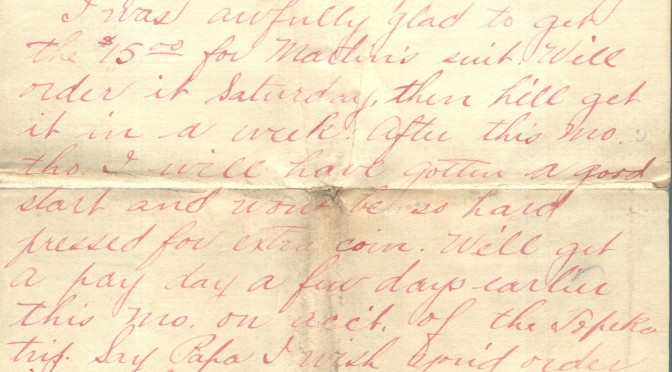 I was awfully glad to get
the $15.00 for Martin's suit. We'll
order it Saturday, then he'll get
it in a week. After this mo.
tho I will have gotten a good
start and won't be so hard
pressed for extra coin. We'll get
a pay day a few days earlier
this mo. on acc't. of the Topeka
trip. Say Papa I wish you'd order